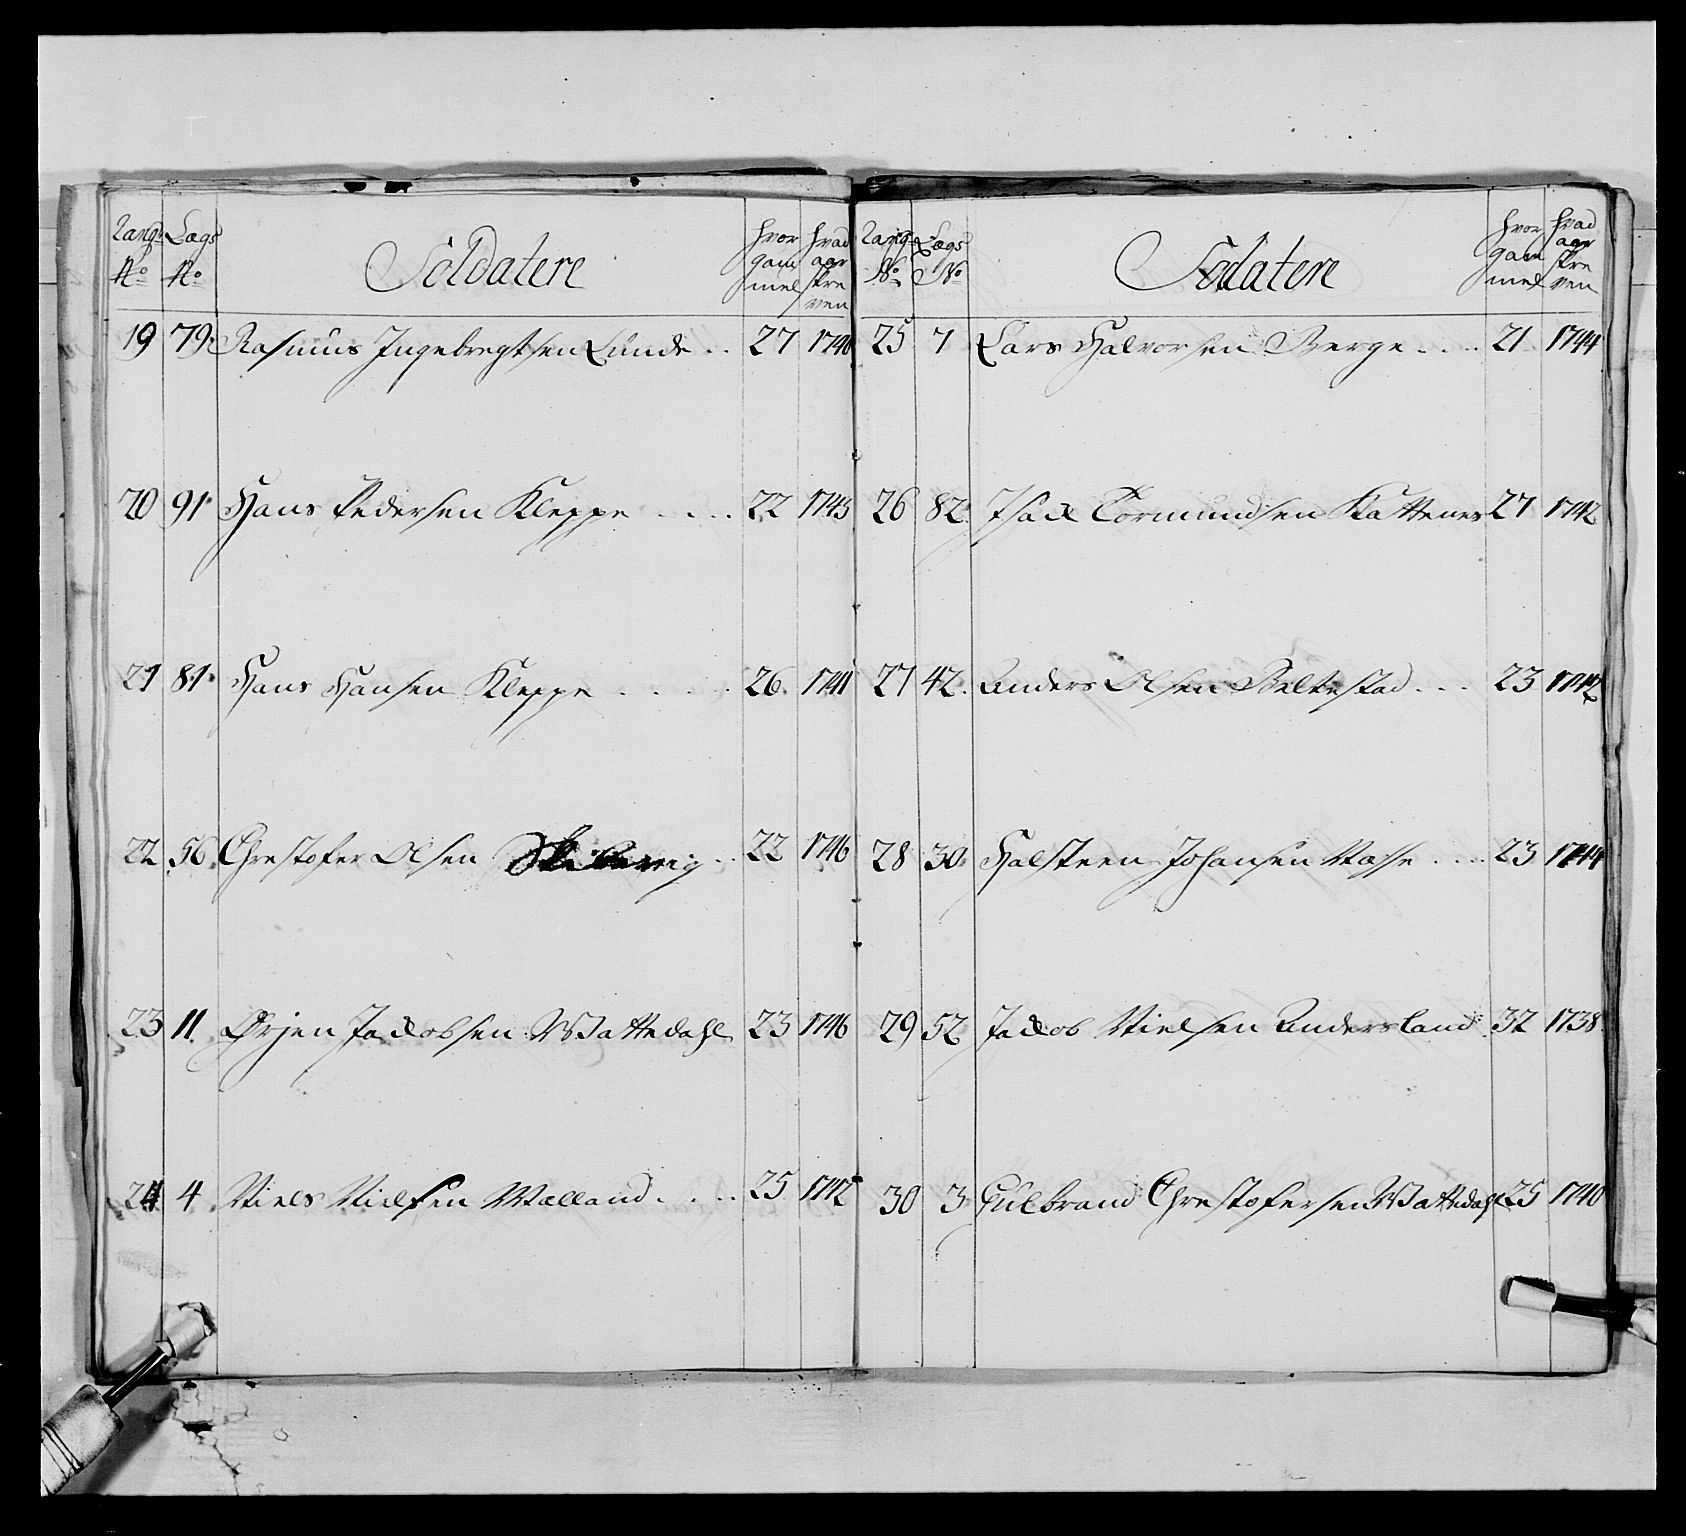 Rang No Lægs No Soldatere hvor gammel hvad aar skreven
19 79 Rasmus Ingebregtsen Lunde . . 27 1740
20 91 Hans Pedersen Kleppe . . . . 22 1745
21 81 Hans Hansen Kleppe . . . . . 26 1741
22 56 Christofer Olsen . . 22 1746
23 11 Ørjen Jacobsen Wattedahl 23 1746
24 4 Niels Nielsen Walland . . . . 25 1742
Rang No Lægs No Sodatere hvor gammel hvad aar skreven
25 7 Lars Halvorsen Berge . . . . 21 1744
26 82 Isack Tormundsen Kattenes 27 1742
27 42 Anders Olsen Beltestad . . . 23 1742
28 30 Halsteen Johansen Nasse . . . . 23 1744
29 52 Jacob Nielsen Andersland 32 1738
30 3 Gulbrand Christofersen Wattedahl 25 1740